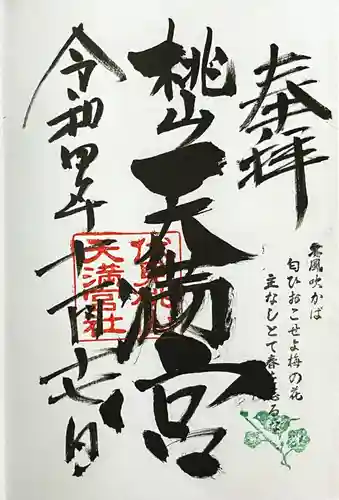 奉拝
桃山天満宮
令和四年十一月七日
東風吹かば
匂ひおこせよ梅の花
主なしとて春を忘るな
伏見桃山
天満宮社